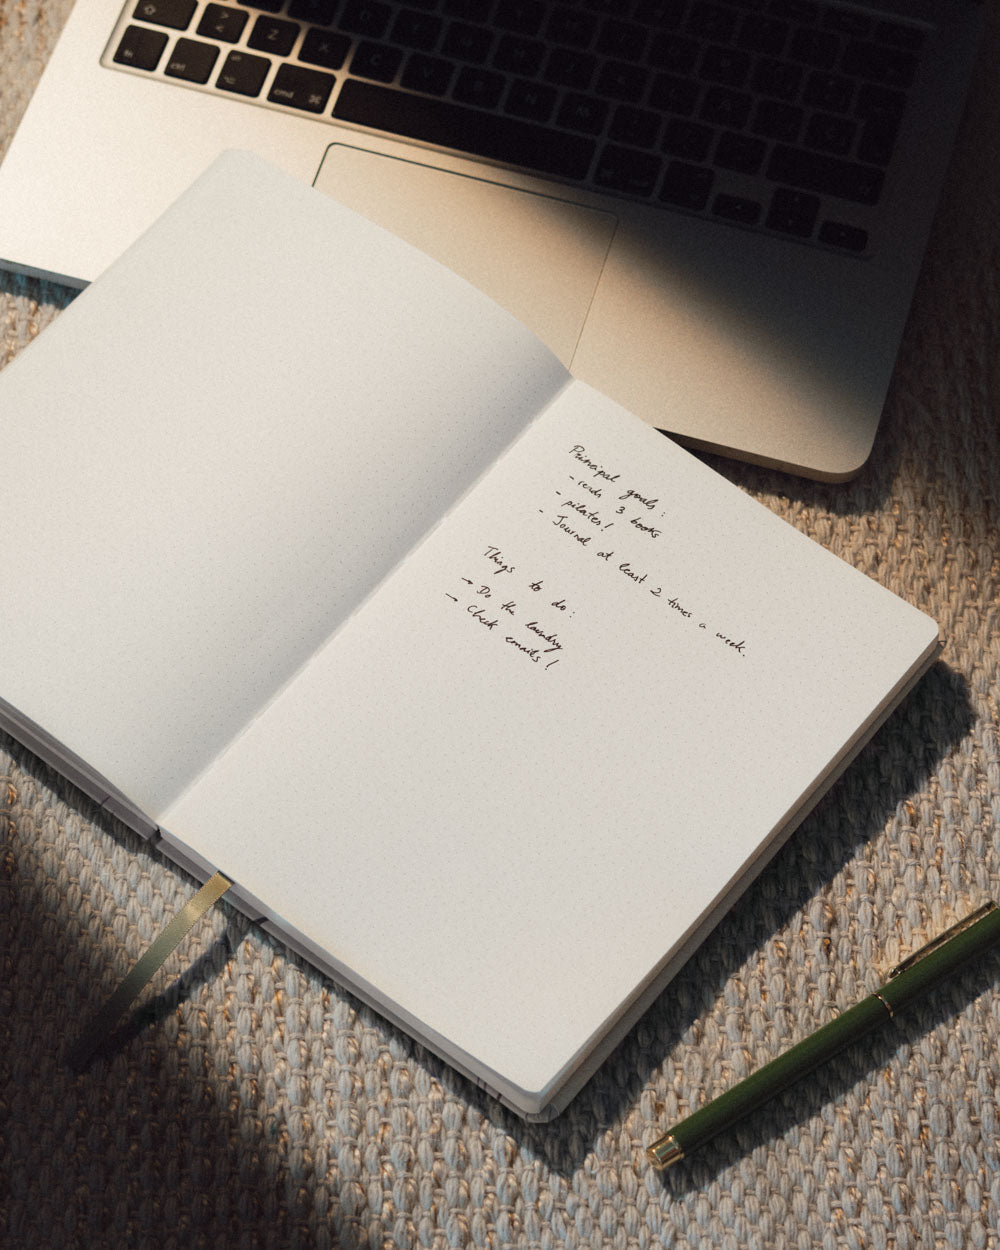 > <
Z
X
C
V
B
N
M
fn
ctrl
⌥
cmd ⌘
Principal goals:
- reads 3 books
- pilates!
- Journal at least 2 times a week.
Things to do:
→ Do the laundry
→ Check emails!